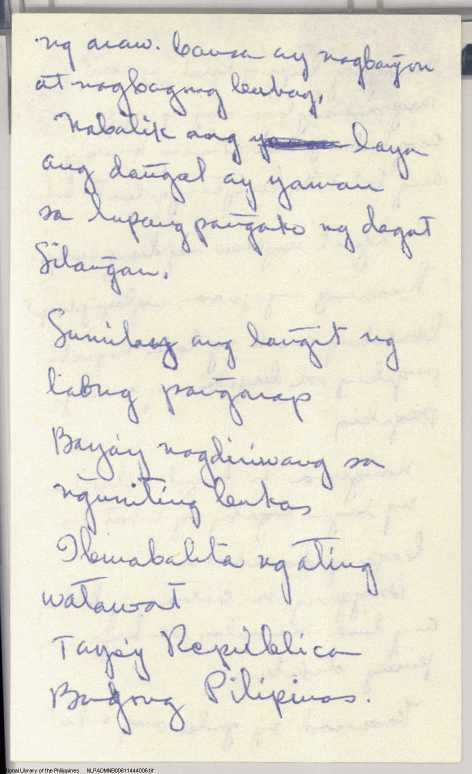 ng araw. bansa ay nagbangon
at nagbagnag leubag,
Nabalik ang laya
ang dangal ay yaman
sa lupang pangako ng dagat
Silangan.
Sumilay ang langit ng
libng pangarap
Bayáy nagdiriwang sa
ngumiting bukas
Ibinabalita ng ating
watawat
Tayoy Republica
Bagong Pilipinas.
National Library of the Philippines